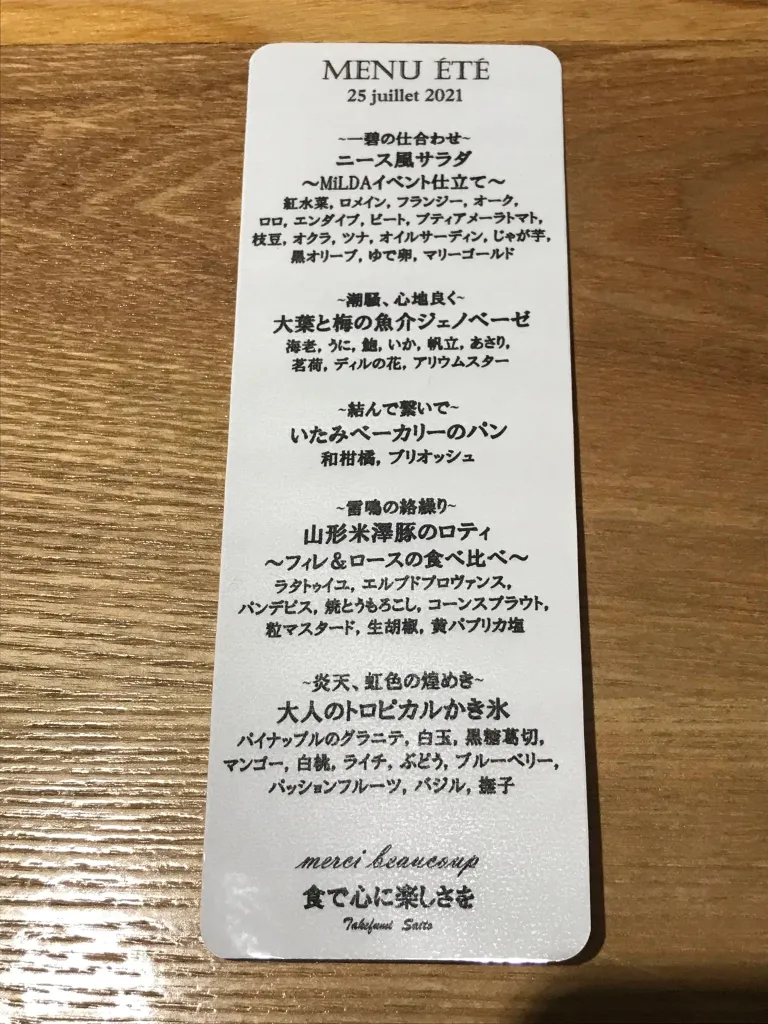 MENU ÉTÉ
25 juillet 2021
~一碧の仕合わせ~
ニース風サラダ
～MiLDAイベント仕立て～
紅水菜, ロメイン, フランジー, オーク,
ロロ, エンダイブ, ビート, プティアメーラトマト,
枝豆, オクラ, ツナ, オイルサーディン, じゃが芋,
黒オリーブ, ゆで卵, マリーゴールド
~潮騒、心地良く~
大葉と梅の魚介ジェノベーゼ
海老, うに, 鮑, いか, 帆立, あさり,
茗荷, ディルの花, アリウムスター
~結んで繋いで~
いたみベーカリーのパン
和柑橘, ブリオッシュ
~雷鳴の絡繰り~
山形米澤豚のロティ
～フィレ＆ロースの食べ比べ～
ラタトゥイユ, エルブドプロヴァンス,
パンデピス, 焼とうもろこし, コーンスプラウト,
粒マスタード, 生胡椒, 黄パプリカ塩
~炎天、虹色の煌めき~
大人のトロピカルかき氷
パイナップルのグラニテ, 白玉, 黒糖葛切,
マンゴー, 白桃, ライチ, ぶどう, ブルーベリー,
パッションフルーツ, バジル, 撫子
merci beaucoup
食で心に楽しさを
Takefumi Saito